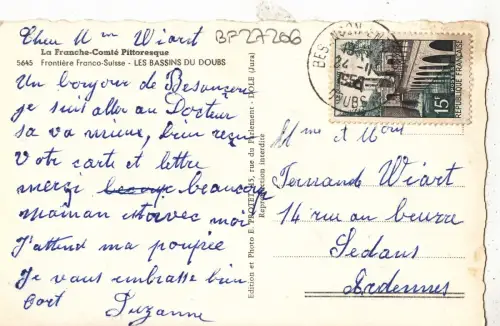 Cher Mm Wiart
BF27266
La Franche-Comté Pittoresque
5645 Frontière Franco-Suisse - LES BASSINS DU DOUBS
Un bonjour de Besançon
je suit aller au Docteur
sa va mieux, bien reçu
Votr carte et lettre
merçi beaucoup
maman et avec moi
J'attend ma poupée
Je vous embrasse bien
fort Suzanne
Edition et Photo E. PROTET, 95, rue du Parlement - DOLE (Jura)
Reproduction interdite
BESANÇON
24 -11
DOUBS
15F
REPUBLIQUE FRANÇAISE
Mme et Mons
Fernande Wiart
14 rue au beurre
Sedans
Ardennes